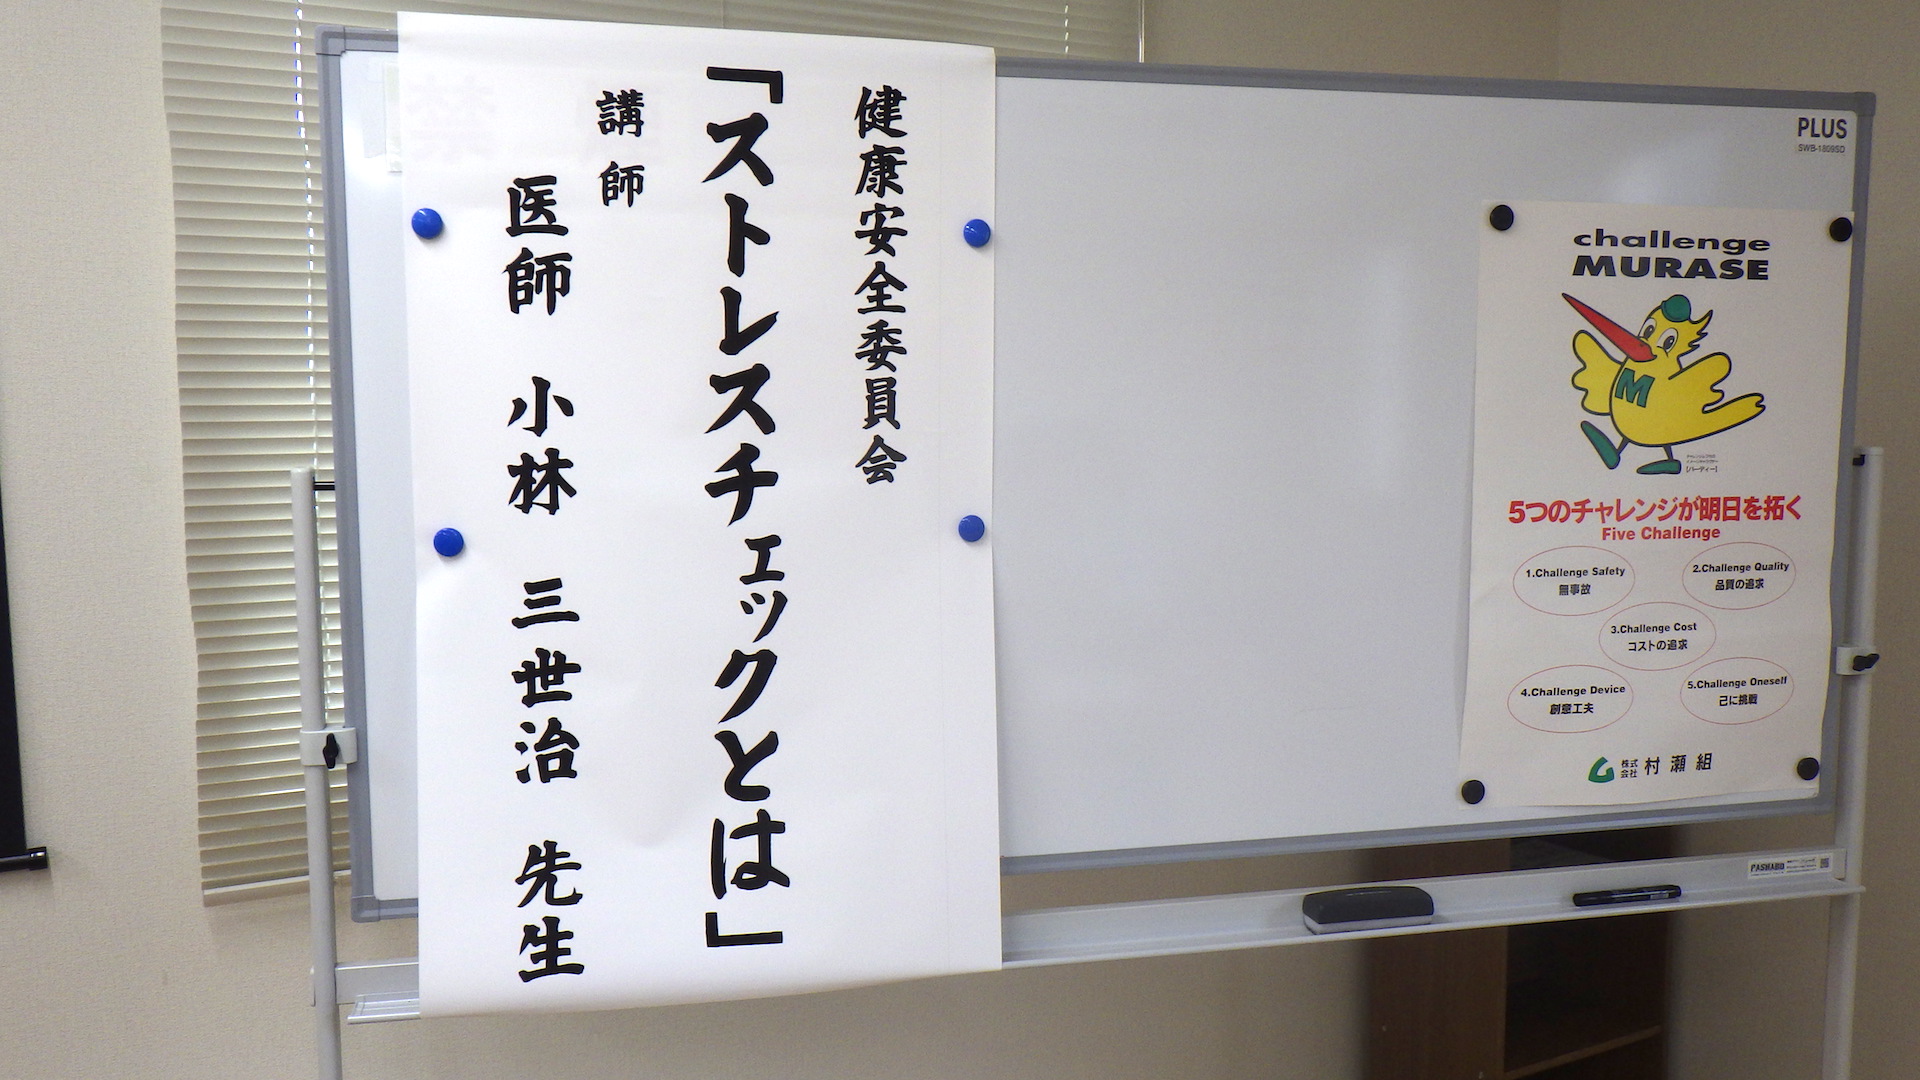 健康安全委員会
「ストレスチェックとは」
講師
医師 小林 三世治 先生
PLUS
SWB-1809SD
challenge
MURASE
M
[バーディー]
5つのチャレンジが明日を拓く
Five Challenge
1.Challenge Safety
無事故
2.Challenge Quality
品質の追求
3.Challenge Cost
コストの追求
4.Challenge Device
創意工夫
5.Challenge Oneself
己に挑戦
株式会社 村瀬組